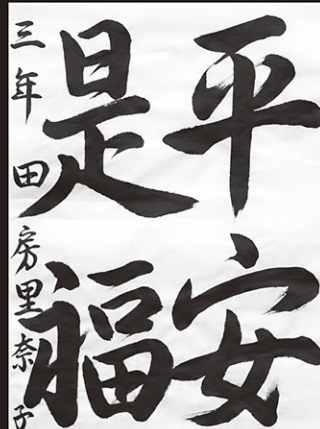 平安
是福
三年 田房里奈子